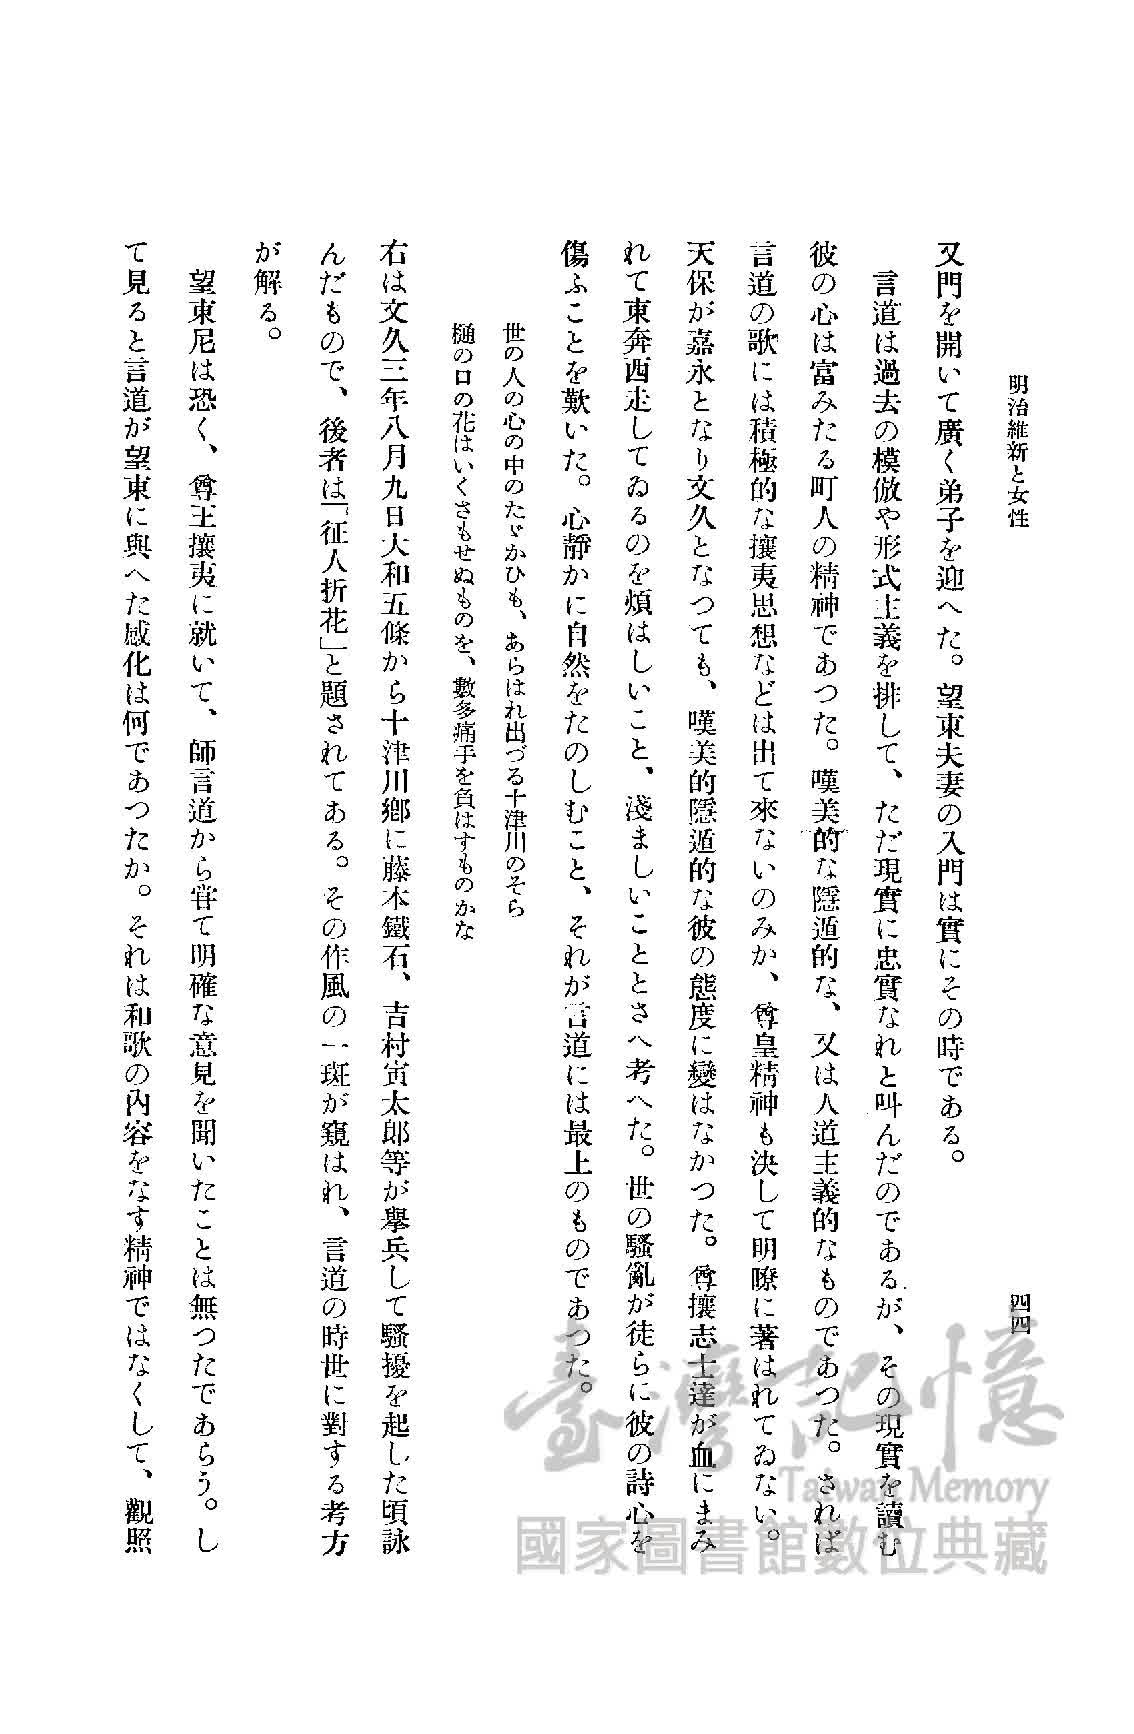 明治維新と女性
四四
又門を開いて廣く弟子を迎へた。望東夫妻の入門は實にその時である。
言道は過去の模倣や形式主義を排して、ただ現實に忠實なれと叫んだのであるが、その現實を讀む
彼の心は富みたる町人の精神であつた。嘆美的な隱遁的な、又は人道主義的なものであつた。されば
言道の歌には積極的な攘夷思想などは出て來ないのみか、尊皇精神も決して明瞭に著はれてゐない。
天保が嘉永となり文久となつても、嘆美的隱遁的な彼の態度に變はなかつた。尊攘志士達が血にまみ
れて東奔西走してゐるのを煩はしいこと、淺ましいこととさへ考へた。世の騷亂が徒らに彼の詩心を
傷ふことを歎いた。心靜かに自然をたのしむこと、それが言道には最上のものであつた。
世の人の心の中のたゞかひも、あらはれ出づる十津川のそら
樋の口の花はいくさもせぬものを、數多痛手を負はすものかな
右は文久三年八月九日大和五條から十津川鄕に藤本鐵石、吉村寅太郎等が擧兵して騷擾を起した頃詠
んだもので、後者は「征人折花」と題されてある。その作風の一斑が窺はれ、言道の時世に對する考方
が解る。
望東尼は恐く、尊王攘夷に就いて、師言道から甞て明確な意見を聞いたことは無つたであらう。し
て見ると言道が望東に與へた感化は何であつたか。それは和歌の內容をなす精神ではなくして、觀照
臺灣記憶
Taiwan Memory
國家圖書館數位典藏